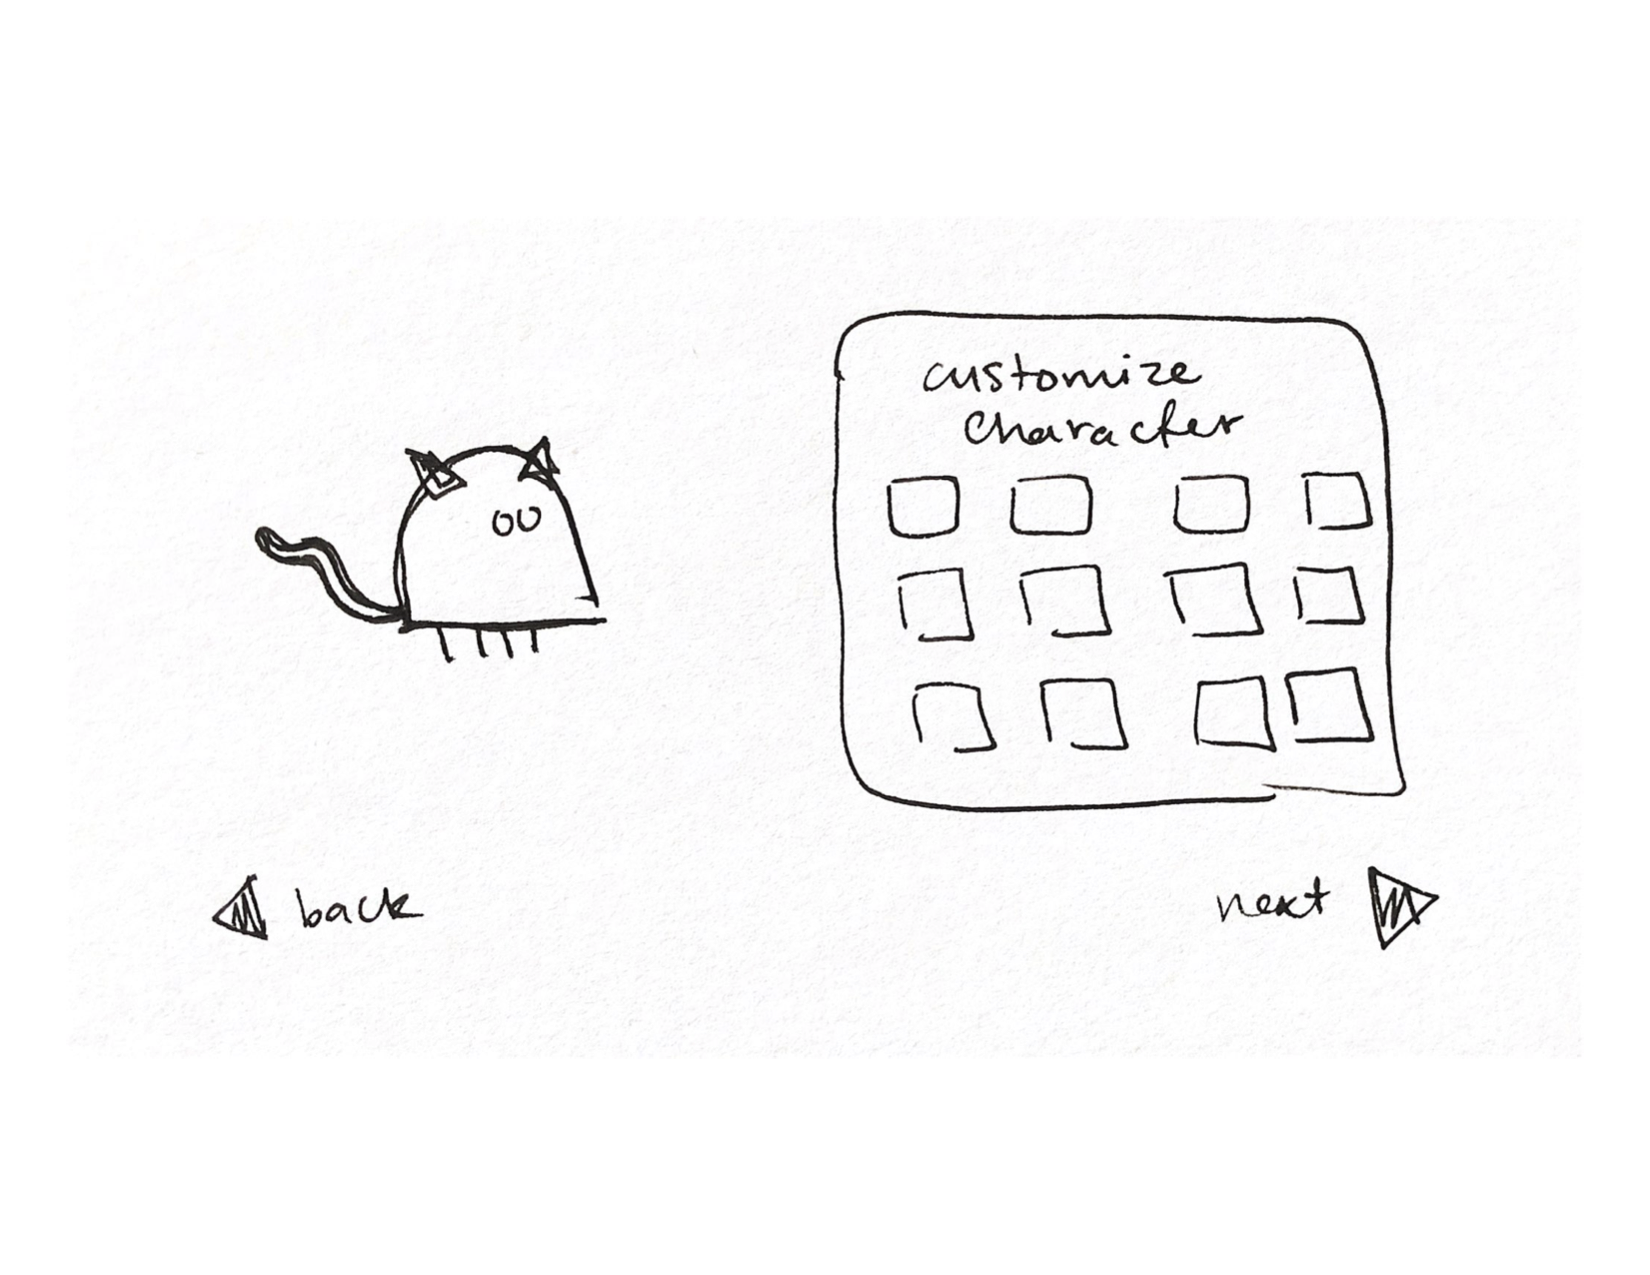 customize
character
back
next